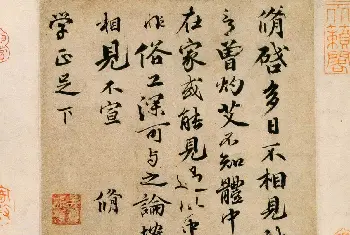 脩啓多日不相見
言曾灼艾不知體中
在家或能見過此中
非俗工深可與之論
相見不宣 脩
學正足下